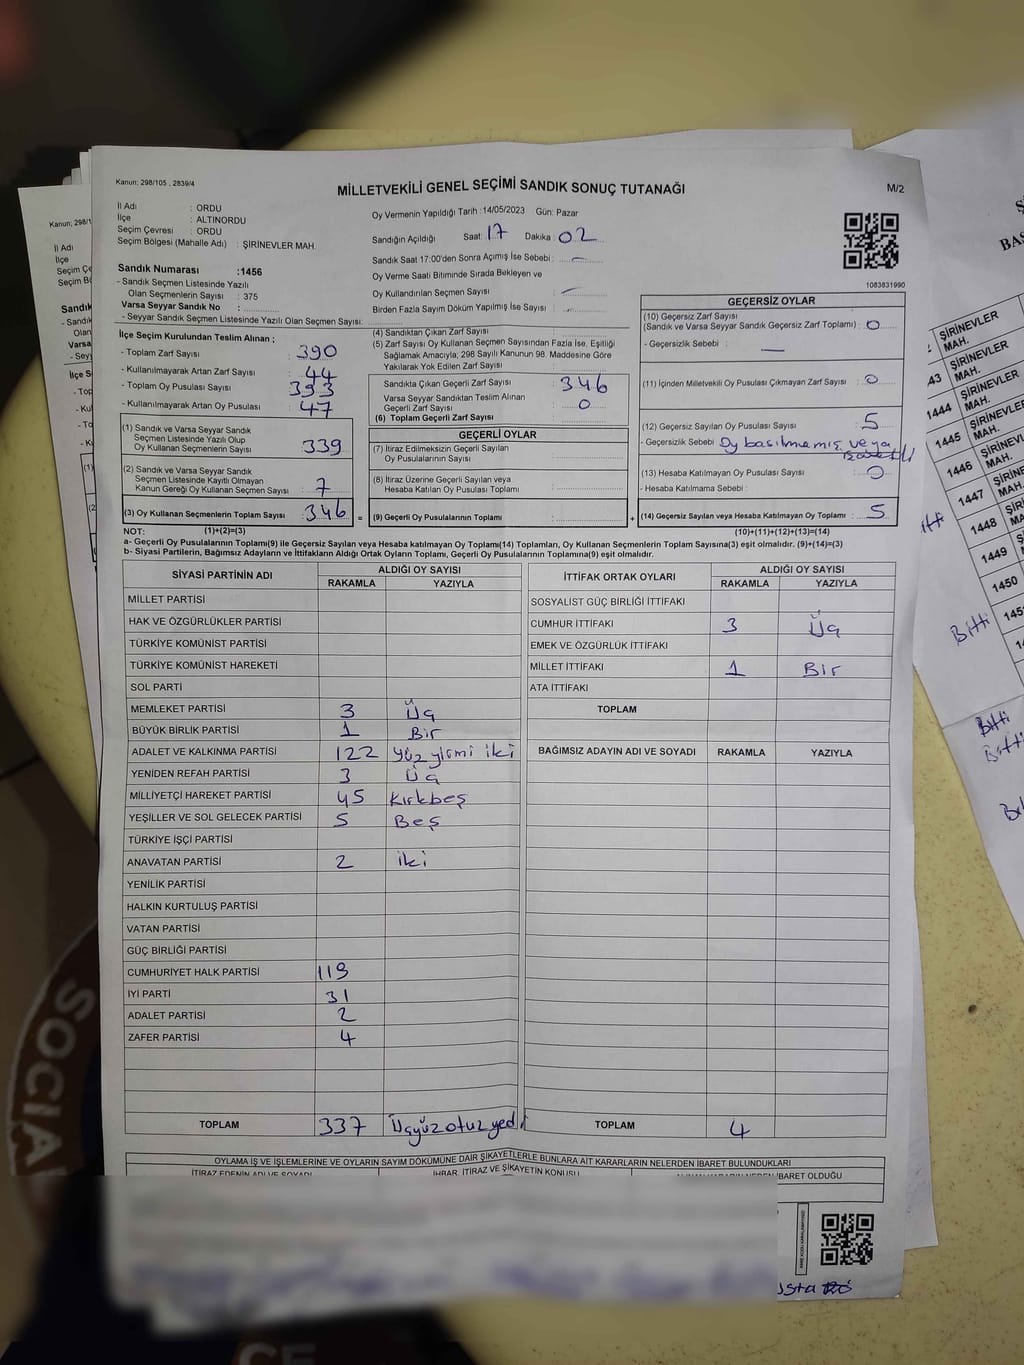 Kanun: 298/105 , 2839/4
MİLLETVEKİLİ GENEL SEÇİMİ SANDIK SONUÇ TUTANAĞI
M/2
İl Adı : ORDU
İlçe : ALTINORDU
Seçim Çevresi : ORDU
Seçim Bölgesi (Mahalle Adı) : ŞİRİNEVLER MAH.
Oy Vermenin Yapıldığı Tarih :14/05/2023 Gün: Pazar
Sandığın Açıldığı Saat: 17 Dakika : 02
Sandık Saat 17:00'den Sonra Açımış İse Sebebi :
Oy Verme Saati Bitiminde Sırada Bekleyen ve
Oy Kullandırılan Seçmen Sayısı :
Birden Fazla Sayım Döküm Yapılmış İse Sayısı :
1083831990
Sandık Numarası :1456
- Sandık Seçmen Listesinde Yazılı
Olan Seçmenlerin Sayısı : 375
Varsa Seyyar Sandık No :
- Seyyar Sandık Seçmen Listesinde Yazılı Olan Seçmen Sayısı:
İlçe Seçim Kurulundan Teslim Alınan ;
- Toplam Zarf Sayısı : 390
- Kullanılmayarak Artan Zarf Sayısı : 44
- Toplam Oy Pusulası Sayısı : 393
- Kullanılmayarak Artan Oy Pusulası : 47
(1) Sandık ve Varsa Seyyar Sandık
Seçmen Listesinde Yazılı Olup
Oy Kullanan Seçmenlerin Sayısı : 339
(2) Sandık ve Varsa Seyyar Sandık
Seçmen Listesinde Kayıtlı Olmayan
Kanun Gereği Oy Kullanan Seçmen Sayısı : 7
(3) Oy Kullanan Seçmenlerin Toplam Sayısı : 346 =
(4) Sandıktan Çıkan Zarf Sayısı
(5) Zarf Sayısı Oy Kullanan Seçmen Sayısından Fazla İse, Eşitliği
Sağlamak Amacıyla; 298 Sayılı Kanunun 98. Maddesine Göre
Yakılarak Yok Edilen Zarf Sayısı
Sandıkta Çıkan Geçerli Zarf Sayısı : 346
Varsa Seyyar Sandıktan Teslim Alınan
Geçerli Zarf Sayısı : 0
(6) Toplam Geçerli Zarf Sayısı
GEÇERLİ OYLAR
(7) İtiraz Edilmeksizin Geçerli Sayılan
Oy Pusulalarının Sayısı :
(8) İtiraz Üzerine Geçerli Sayılan veya
Hesaba Katılan Oy Pusulası Toplamı :
(9) Geçerli Oy Pusulalarının Toplamı : +
GEÇERSİZ OYLAR
(10) Geçersiz Zarf Sayısı
(Sandık ve Varsa Seyyar Sandık Geçersiz Zarf Toplamı) : 0
- Geçersizlik Sebebi :
(11) İçinden Milletvekili Oy Pusulası Çıkmayan Zarf Sayısı : 0
(12) Geçersiz Sayılan Oy Pusulası Sayısı : 5
- Geçersizlik Sebebi Oy basılmamış veya
(13) Hesaba Katılmayan Oy Pusulası Sayısı : 0
- Hesaba Katılmama Sebebi :
(14) Geçersiz Sayılan veya Hesaba Katılmayan Oy Toplamı : 5
NOT: (1)+(2)=(3) (10)+(11)+(12)+(13)=(14)
a- Geçerli Oy Pusulalarının Toplamı(9) ile Geçersiz Sayılan veya Hesaba Katılmayan Oy Toplamı(14) Toplamları, Oy Kullanan Seçmenlerin Toplam Sayısına(3) eşit olmalıdır. (9)+(14)=(3)
b- Siyasi Partilerin, Bağımsız Adayların ve İttifakların Aldığı Ortak Oyların Toplamı, Geçerli Oy Pusulalarının Toplamına(9) eşit olmalıdır.
SİYASİ PARTİNİN ADI ALDIĞI OY SAYISI
RAKAMLA YAZIYLA
MİLLET PARTİSİ
HAK VE ÖZGÜRLÜKLER PARTİSİ
TÜRKİYE KOMÜNİST PARTİSİ
TÜRKİYE KOMÜNİST HAREKETİ
SOL PARTİ
MEMLEKET PARTİSİ 3 Üç
BÜYÜK BİRLİK PARTİSİ 1 Bir
ADALET VE KALKINMA PARTİSİ 122 Yüz yirmi iki
YENİDEN REFAH PARTİSİ 3 Üç
MİLLİYETÇİ HAREKET PARTİSİ 45 Kırkbeş
YEŞİLLER VE SOL GELECEK PARTİSİ 5 Beş
TÜRKİYE İŞÇİ PARTİSİ
ANAVATAN PARTİSİ 2 iki
YENİLİK PARTİSİ
HALKIN KURTULUŞ PARTİSİ
VATAN PARTİSİ
GÜÇ BİRLİĞİ PARTİSİ
CUMHURİYET HALK PARTİSİ 119
İYİ PARTİ 31
ADALET PARTİSİ 2
ZAFER PARTİSİ 4
TOPLAM 337 Üçyüzotuzyedi
İTTİFAK ORTAK OYLARI ALDIĞI OY SAYISI
RAKAMLA YAZIYLA
SOSYALİST GÜÇ BİRLİĞİ İTTİFAKI
CUMHUR İTTİFAKI 3 Üç
EMEK VE ÖZGÜRLÜK İTTİFAKI
MİLLET İTTİFAKI 1 Bir
ATA İTTİFAKI
TOPLAM
BAĞIMSIZ ADAYIN ADI VE SOYADI RAKAMLA YAZIYLA
TOPLAM 4
OYLAMA İŞ VE İŞLEMLERİNE VE OYLARIN SAYIM DÖKÜMÜNE DAİR ŞİKAYETLERLE BUNLARA AİT KARARLARIN NELERDEN İBARET BULUNDUKLARI
İTİRAZ EDENİN ADI VE SOYADI İHBAR, İTİRAZ VE ŞİKAYETİN KONUSU İBARET OLDUĞU
Kanun: 298/1
İl Adı
İlçe
Seçim Çe
Seçim B
Sandık
Varsa
BAŞ
ŞİRİNEVLER
MAH.
43 ŞİRİNEVLER
MAH.
1444 ŞİRİNEVLER
MAH.
1445 ŞİRİNEVLER
MAH.
1446 ŞİRİNEVL
MAH.
1447 ŞİRİNE
MAH.
1448 ŞİRİ
1449
1450
145
Bitti
Bitti
Bitti
SOCIAL
CE